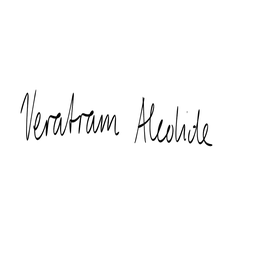 Veratram Alcolide